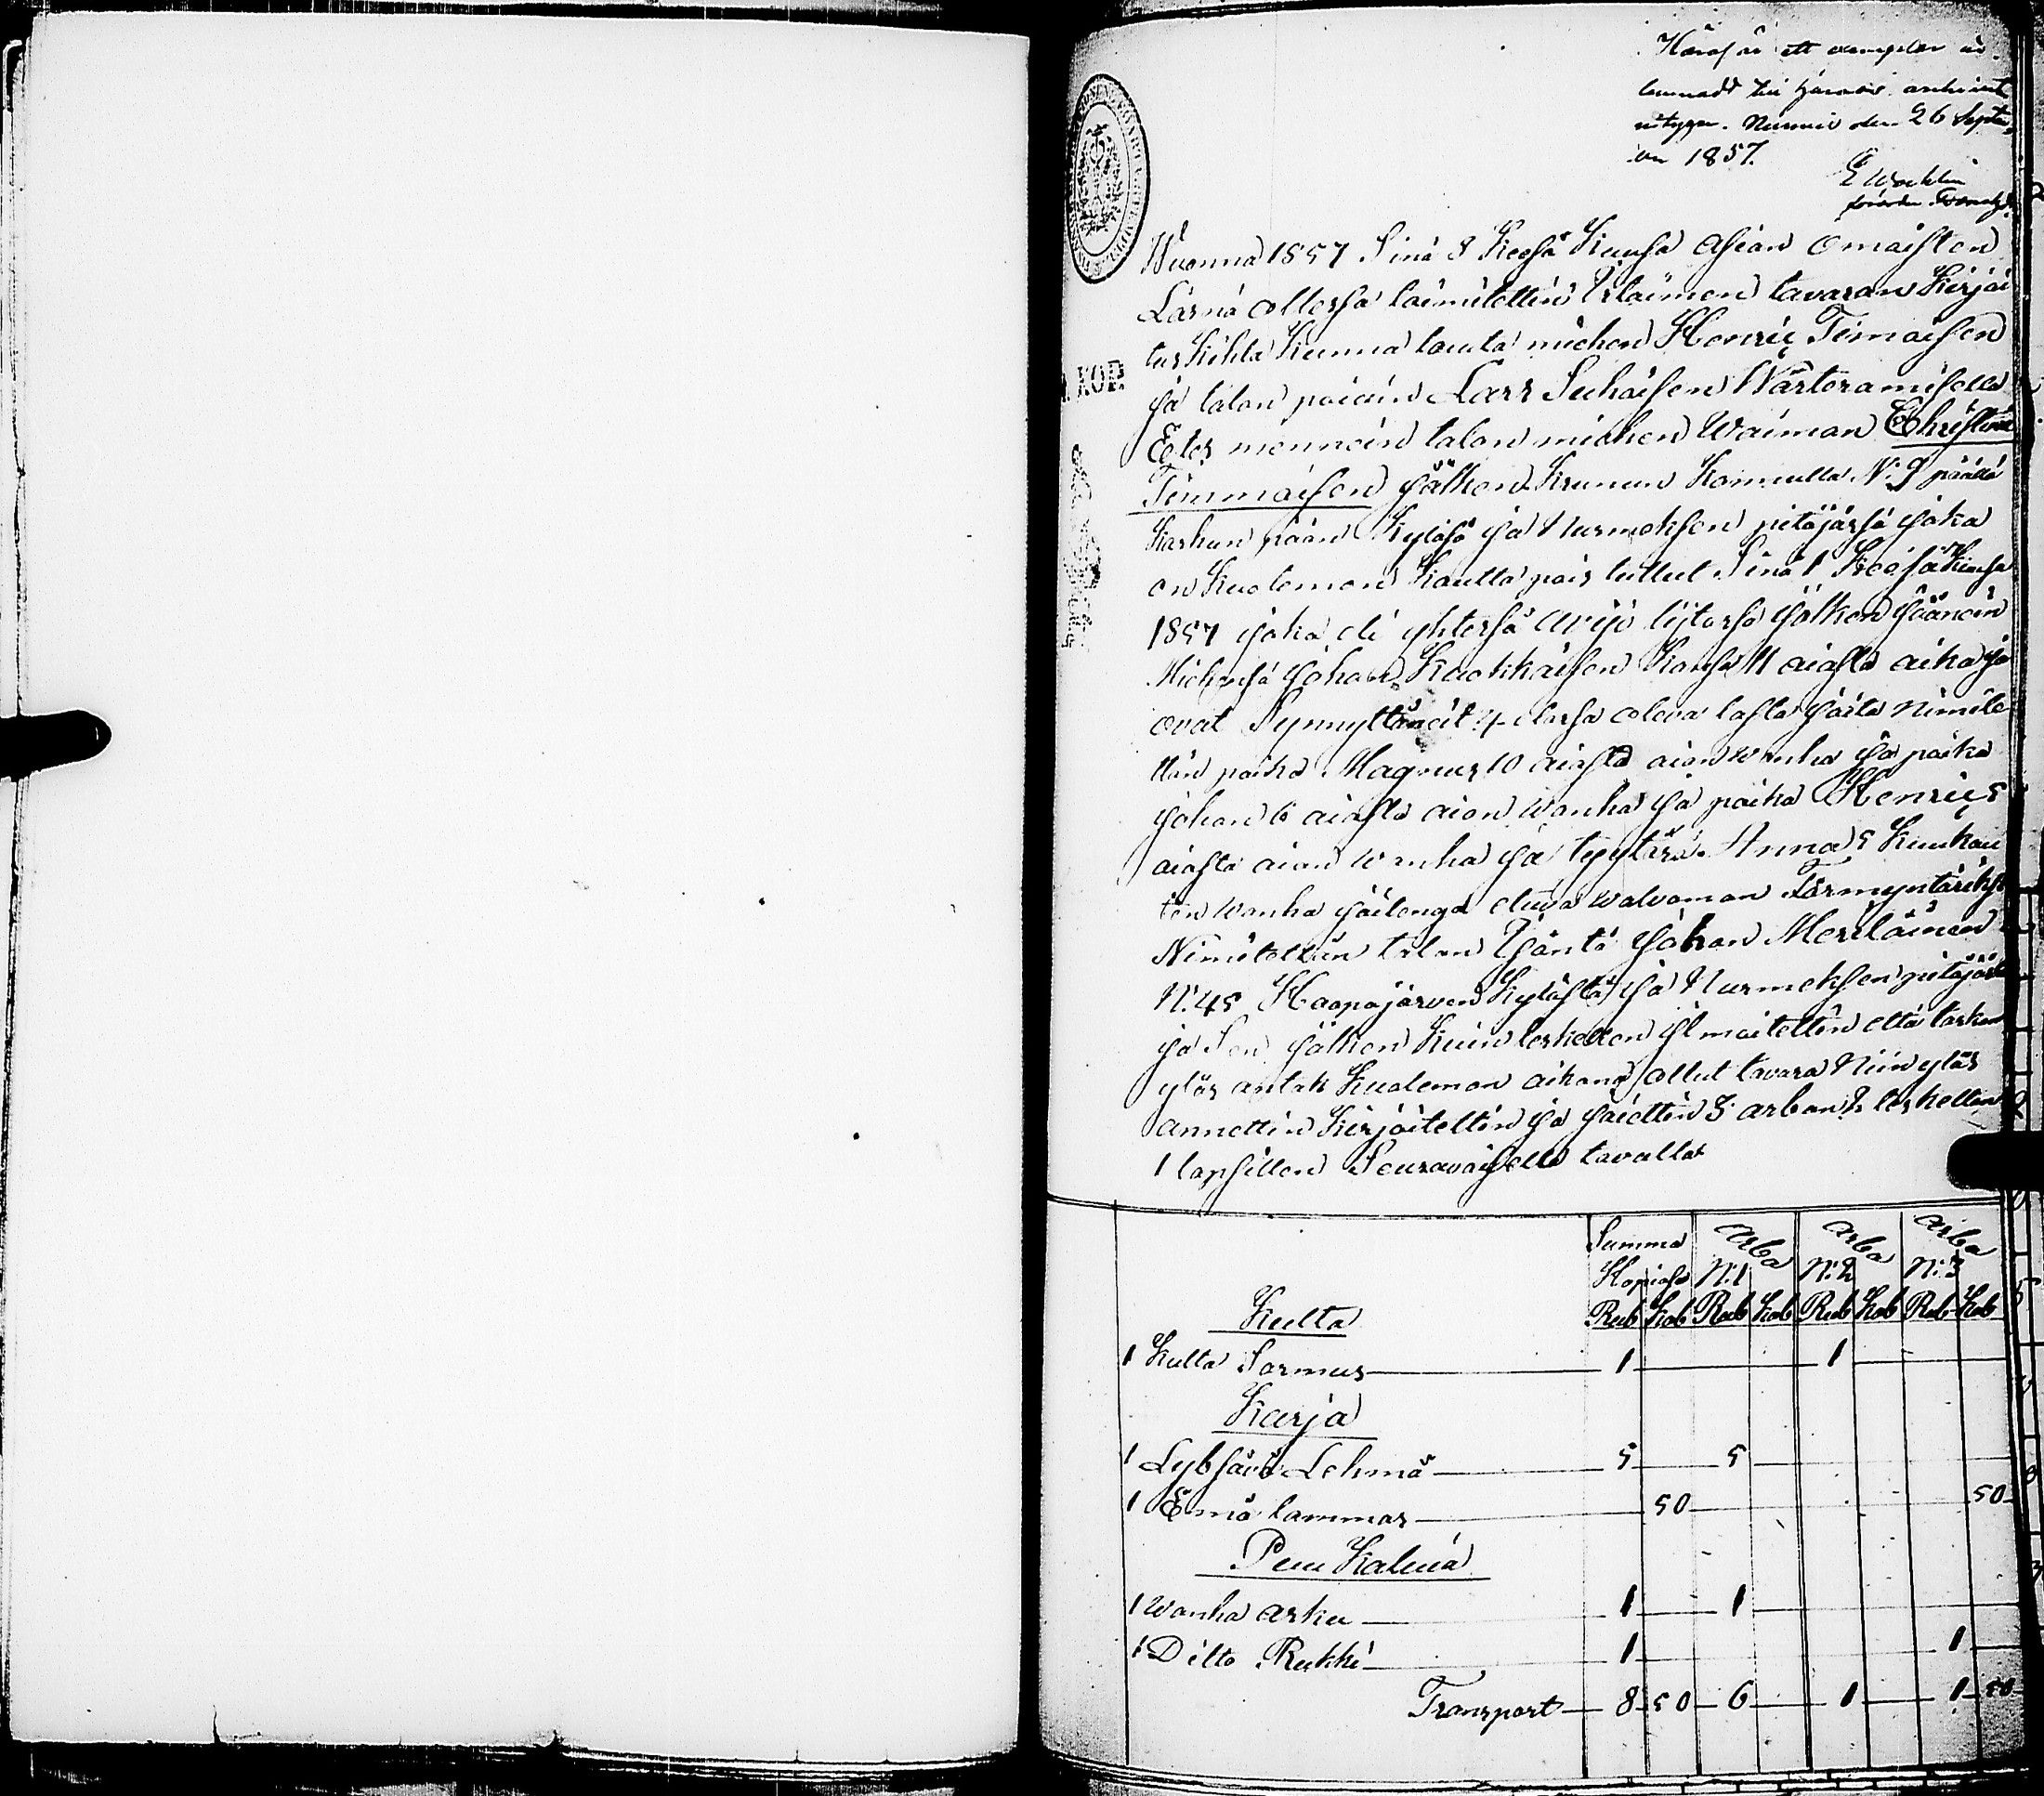 Häraf är ett exemplar
lemnadt till Härads archivet
intygar. Nurmis den 26 Septem
ber 1857.
E Wacklin
KOP.
Wuonna 1857 Sinä 8 Keesä Kuusa Asian Omaisten
Läsnä ollessa toimitettin Irtaimen tavaran Kirjoi
tus Kihla Kunna lauta miehen Henric Timoisen
ja talon poian Lars Suhoisen Wärteramisella
Edes mennein talon miehen Waiman Christina
Timmoisen jälken Krunun Konnulla N:9 päädä
Karhun pään Kyläsä ja Nurmeksen pitäjäsä joka
on Kuoleman Kautta pois tullut Sinä 1 Keesä Kuusa
1857 joka eli yhtesä Avijo lijtosa jälken jäänein
Miehensä Johan Kuokkaisen Kansa 11 aiasta aika ja
ovat Synnyttäneit 4 elosa oleva lasta joita Nimite
tän poika Magnus 10 aiasta aian wanha ja poika
Johan 6 aiasta aian wanha ja poika Henric 5
aiasta aian wanha ja tyytäsä Anna 5 Kuukau
ten wanha joilenga etuva walvoman Färmyntäriksi
Nimitettin talon Isäntä Johan Meriläinen
N:45 Haapajärven Kylästä ja Nurmeksen pitäjästä
ja Sen jälken Kuin leskellen Ilmoitettin että tarkan
ylös antak Kuoleman aikana ollut tavara Niin ylös
annettin Kirjoitettin ja jaettin 3 arban 2 leskellen
1 lapsillen Seuravaisella tavalla
Summa Arba Arba Arba
Hopiasa N:1 N:2 N:3
Kulta Rub Kob Rub Kob Rub Kob Rub Kob
1 Kulta Sormus 1 1
Karja
1 Lybsävä Lehmä 5 5
1 Emä lammas 50 50
Puu Kaluia
1 Wanha arku 1 1
1 Ditto Rukki 1 1
Transport 8 50 6 1 1 50